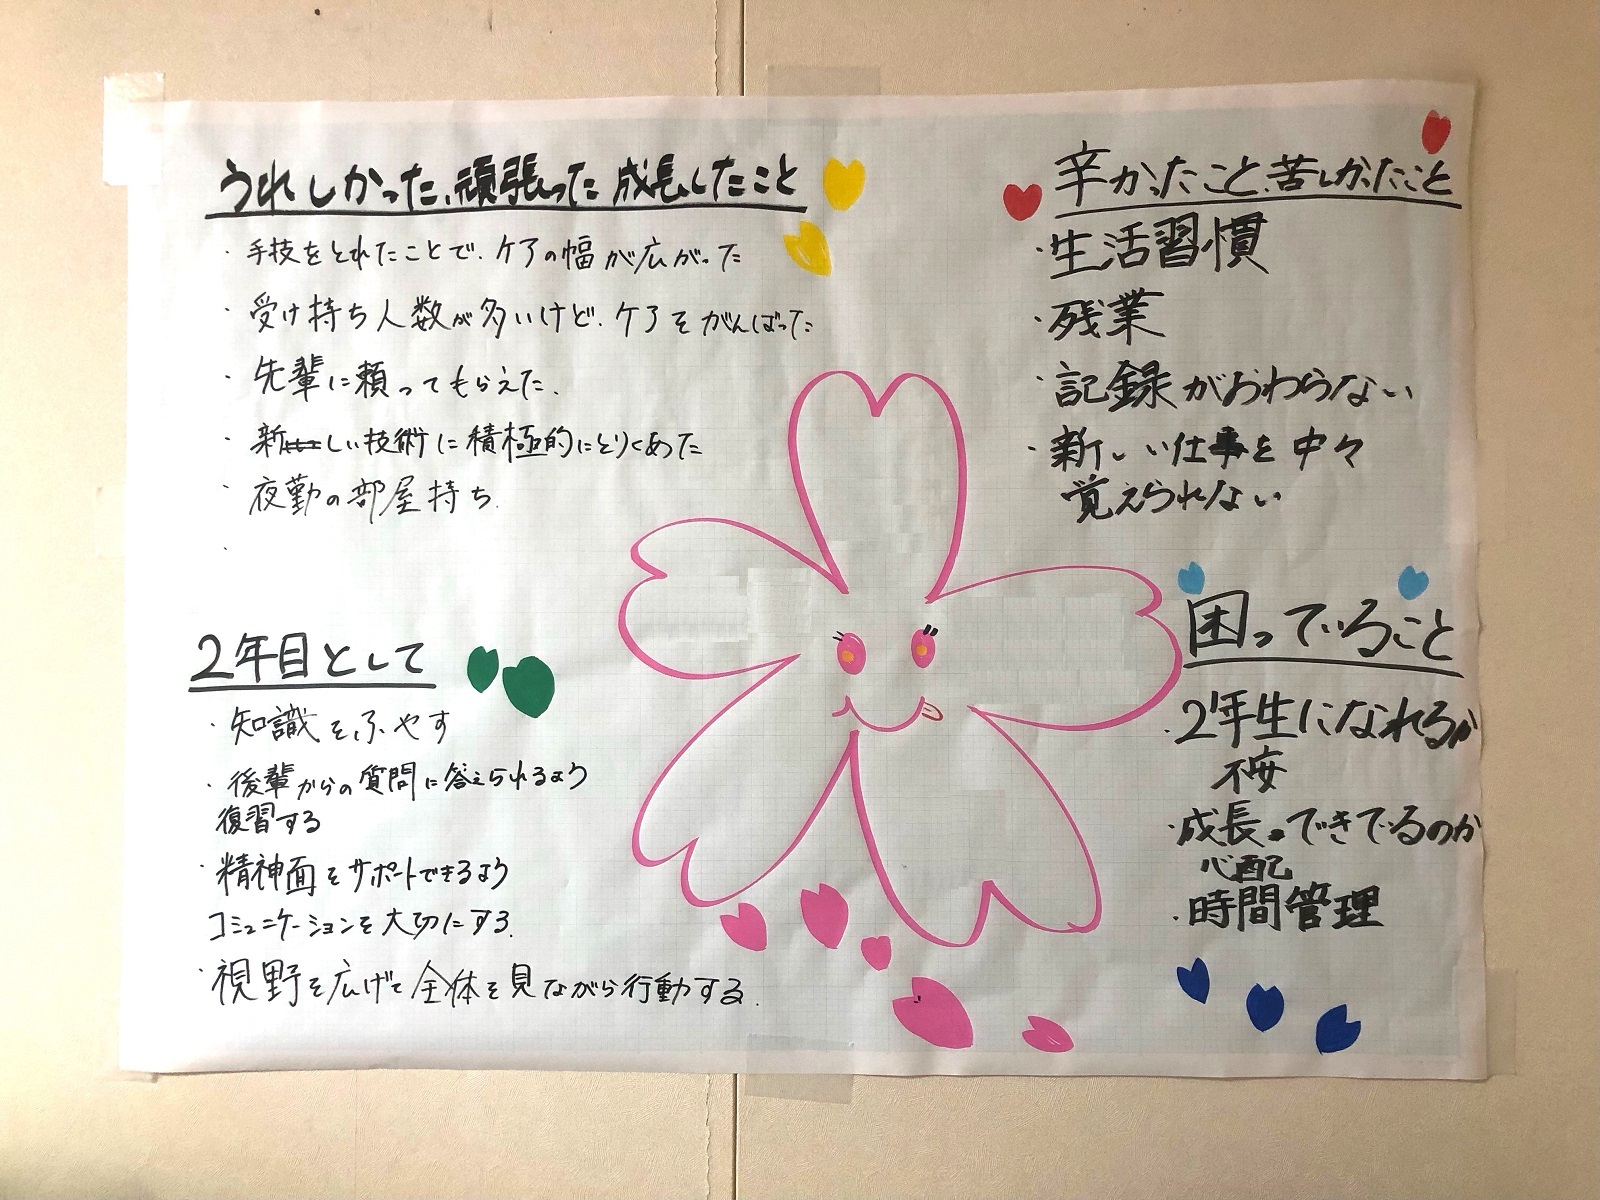 うれしかった、頑張った、成長したこと
・手技をとれたことで、ケアの幅が広がった
・受け持ち人数が多いけど、ケアをがんばった
・先輩に頼ってもらえた、
・新しい技術に積極的にとりくめた
・夜勤の部屋持ち
・
2年目として
・知識をふやす
・後輩からの質問に答えられるよう
復習する
・精神面をサポートできるよう
コミュニケーションを大切にする。
・視野を広げて全体を見ながら行動する。
辛かったこと、苦しかったこと
・生活習慣
・残業
・記録がおわらない
・新しい仕事を中々
覚えられない
困っていること
・2年生になれるか
不安
・成長できてるのか
心配
・時間管理